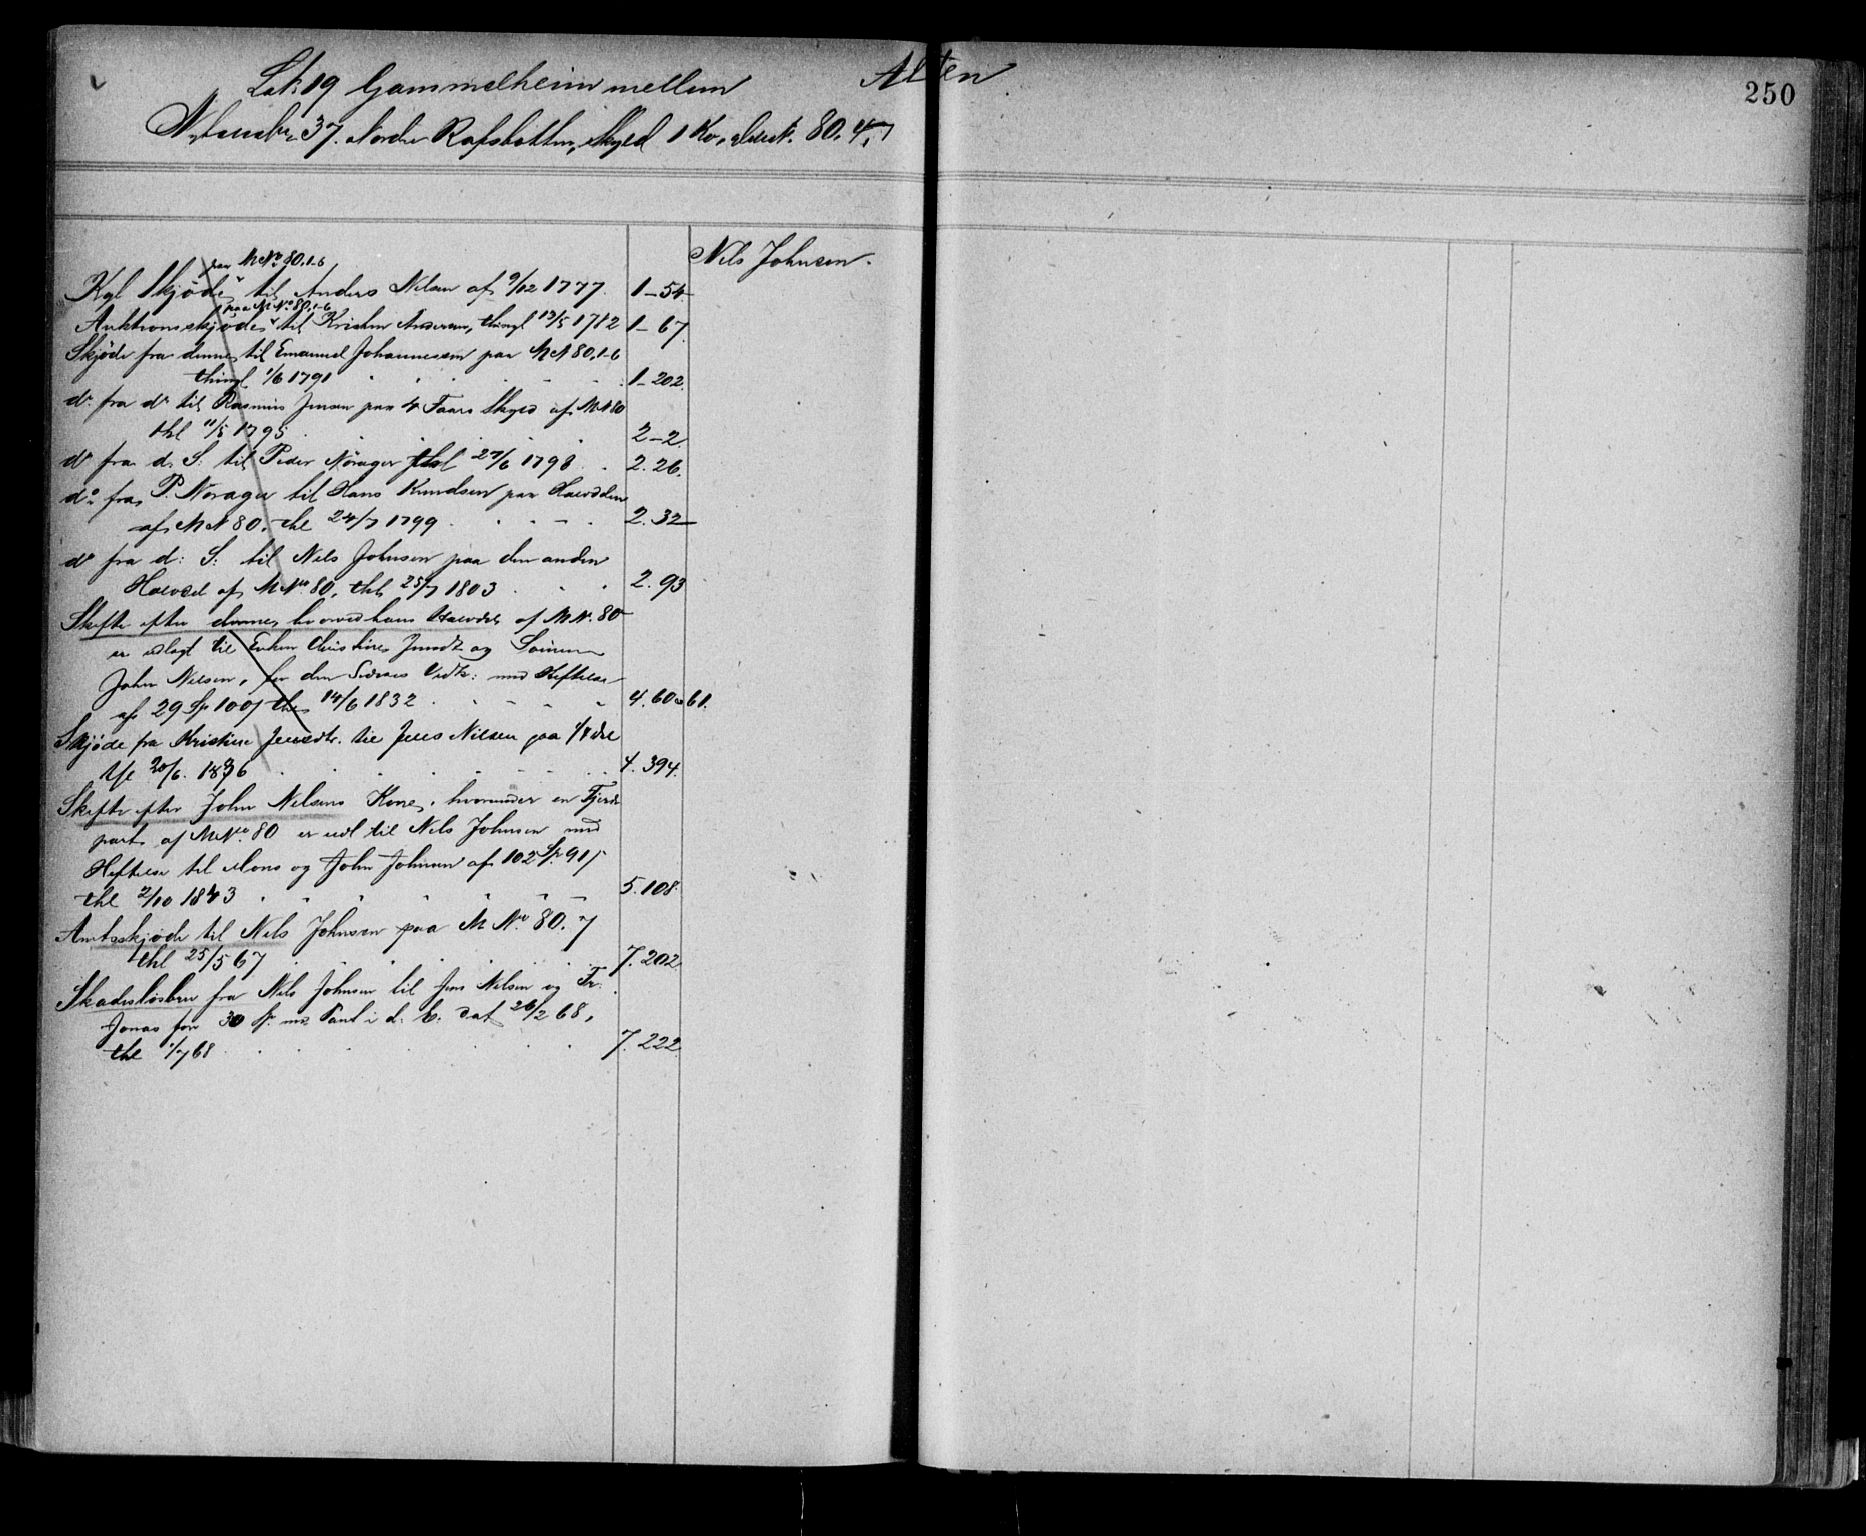 Alten
250
19 Gammelheim mellem
37. Nordre Rafsbotten, skyld 80, 4,7
paa MNo 80, 1-6
Nils Johnsen.
Kgl Skjøde til Anders Nilsen af 9/12 1777. 1-54
paa MNo 80, 1-6
Auktionsskjøde til Kristen Andersen, thingl 13/5 1782 1-67.
Skjøde fra denne til Emanuel Johannessen paa MN 80, 1-6
thingl. 1/6 1791 1-202.
do. fra do til Rasmus Jensen paa 4 Faars Skyld af MN 80
thl 11/5 1795 2-2.
do fra d. S. til Peder Nörager thl 27/6 1798 2. 26.
do fra P. Norager til Hans Knudsen paa Halvdelen
af MN 80, thl 24/7 1799 2. 32
do fra d: S: til Nils Johnsen paa den anden
Halvdel af MNo 80, thl 25/7 1803 2. 93
Skifte efter denne, hvorved hans Halvdel af MN. 80
er udlagt til Enken Christine og Sönnen
John Nilsen, for den Sidstes Vedk: med Heftelse
af 29 Sp 100 thl 14/6 1832 4. 60 o 61.
Skjøde fra Kristine Jensdtr. til Jens Nilsen paa 1/4 del
20/6. 1836 4. 394.
Skifte efter John Nilsens Kone, hvorunder en Fjerde
part af MNo. 80 er udl til Nils Johnsen med
Heftelse til Mons og John Johnsen af 102 Sp. 91
thl 2/10 1843 5. 108.
Amtsskjøde til Nils Johnsen paa M No. 80. 7
thl 25/5 67 7. 202
Skadesløsbrev fra Nils Johnsen til Jens Nilsen og Fr.
Jonas for 30 Sp. med Pant i d. E. dat 26/2 68,
thl 1/7 68 7. 222.